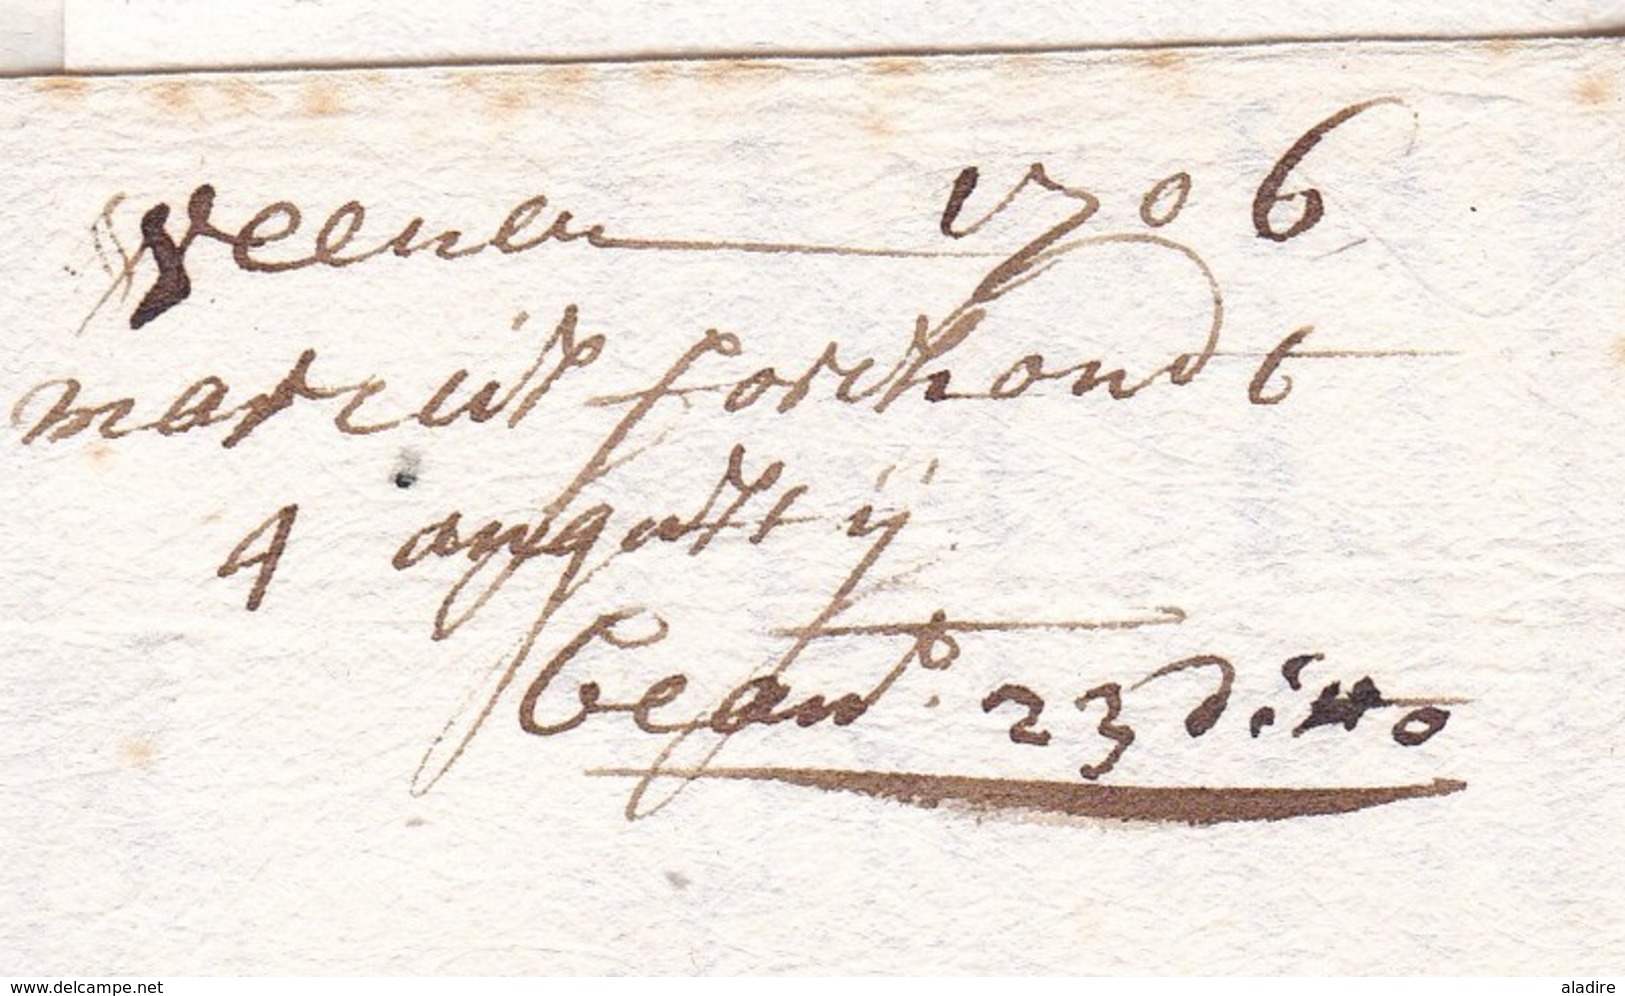 Weenen 1706
marcus forchondt
4 augusti ij
beand. 23 ditto
www.delcampe.net
aladire